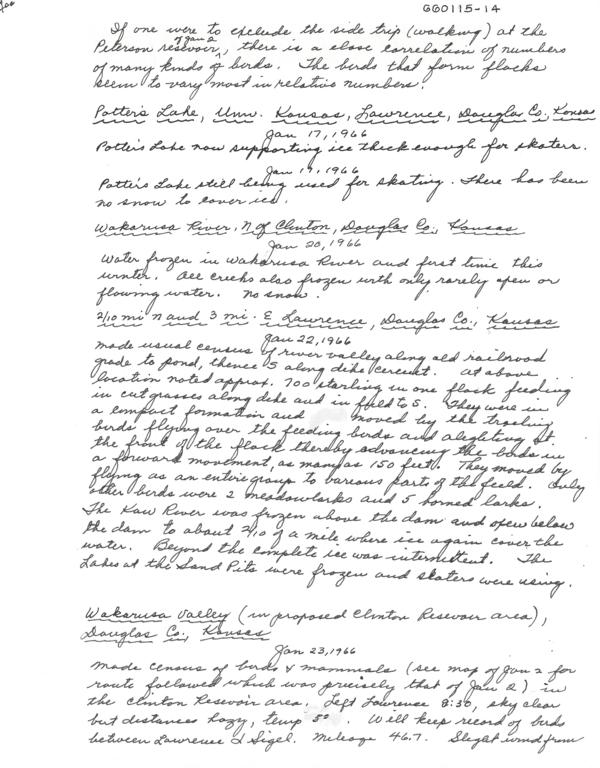 GG0115-14
If one were to exclude the side trip (walking) at the
of Jan 2
Peterson resevoir, there is a close correlation of numbers
of many kinds of birds. The birds that form flocks
seem to vary most in relative numbers.
Potter's Lake, Univ. Kansas, Lawrence, Douglas Co., Kansas
Jan 17, 1966
Potter's Lake now supporting ice thick enough for skaters.
Jan 19, 1966
Potter's Lake still being used for skating. There has been
no snow to cover ice.
Wakarusa River, N of Clinton, Douglas Co., Kansas
Jan 20, 1966
Water frozen in Wakarusa River and first time this
winter. All creeks also frozen with only rarely open or
flowing water. No snow.
2/10 mi N and 3 mi. E Lawrence, Douglas Co., Kansas
Jan 22, 1966
Made usual census of river valley along old railroad
grade to pond, thence S along dike circuit. At above
location noted approx. 700 starling in one flock feeding
in cut grasses along dike and in field to S. They were in
a compact formation and moved by the trailing
birds flying over the feeding birds and alighting at
the front of the flock thereby advancing the birds in
a forward movement, as many as 150 feet. They moved by
flying as an entire group to various parts of the field. Only
other birds were 2 meadowlarks and 5 horned larks.
The Kaw River was frozen above the dam and open below
the dam to about 2/10 of a mile where ice again cover the
water. Beyond the complete ice was intermittent. The
Lakes at the Sand Pits were frozen and skaters were using.
Wakarusa Valley (in proposed Clinton Resevoir area),
Douglas Co., Kansas
Jan 23, 1966
Made census of birds & mammals (see map of Jan 2 for
route followed which was precisely that of Jan 2) in
the Clinton Resevoir area. Left Lawrence 8:30, sky clear
but distances hazy, temp 5°. Will keep record of birds
between Lawrence & Sigel. Mileage 46.7. Slight wind from